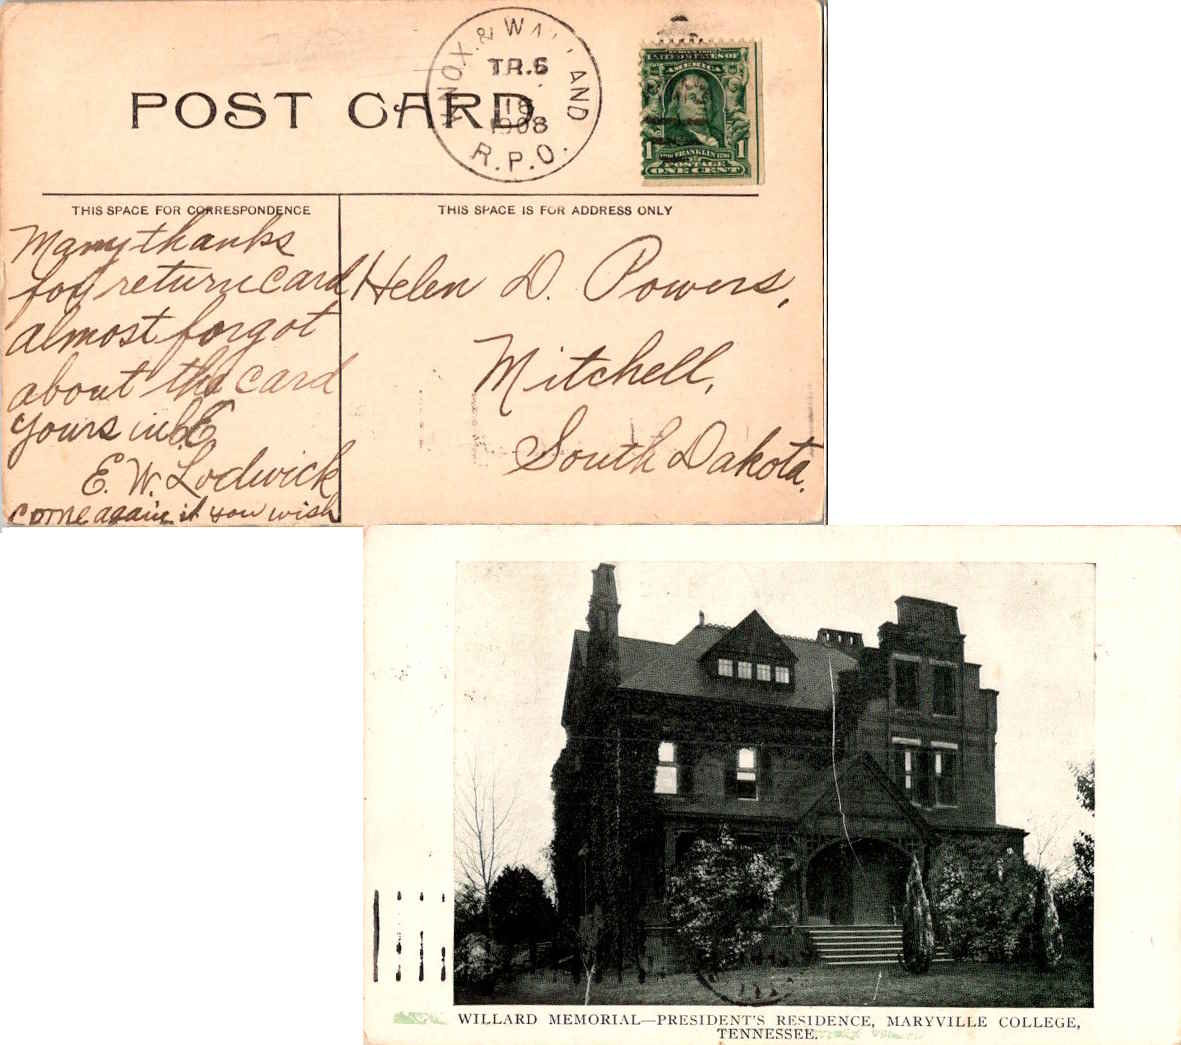 POST CARD
KNOX. & WALLAND
TR.6
18
1908
R.P.O.
UNITED STATES OF
AMERICA
1 FRANKLIN 1
POSTAGE
ONE CENT
THIS SPACE FOR CORRESPONDENCE
THIS SPACE IS FOR ADDRESS ONLY
Many thanks
for return card
almost forgot
about the card
Yours in
E. W. Lodwick
come again if you wish
Helen D. Powers,
Mitchell,
South Dakota.
WILLARD MEMORIAL—PRESIDENT'S RESIDENCE, MARYVILLE COLLEGE,
TENNESSEE.